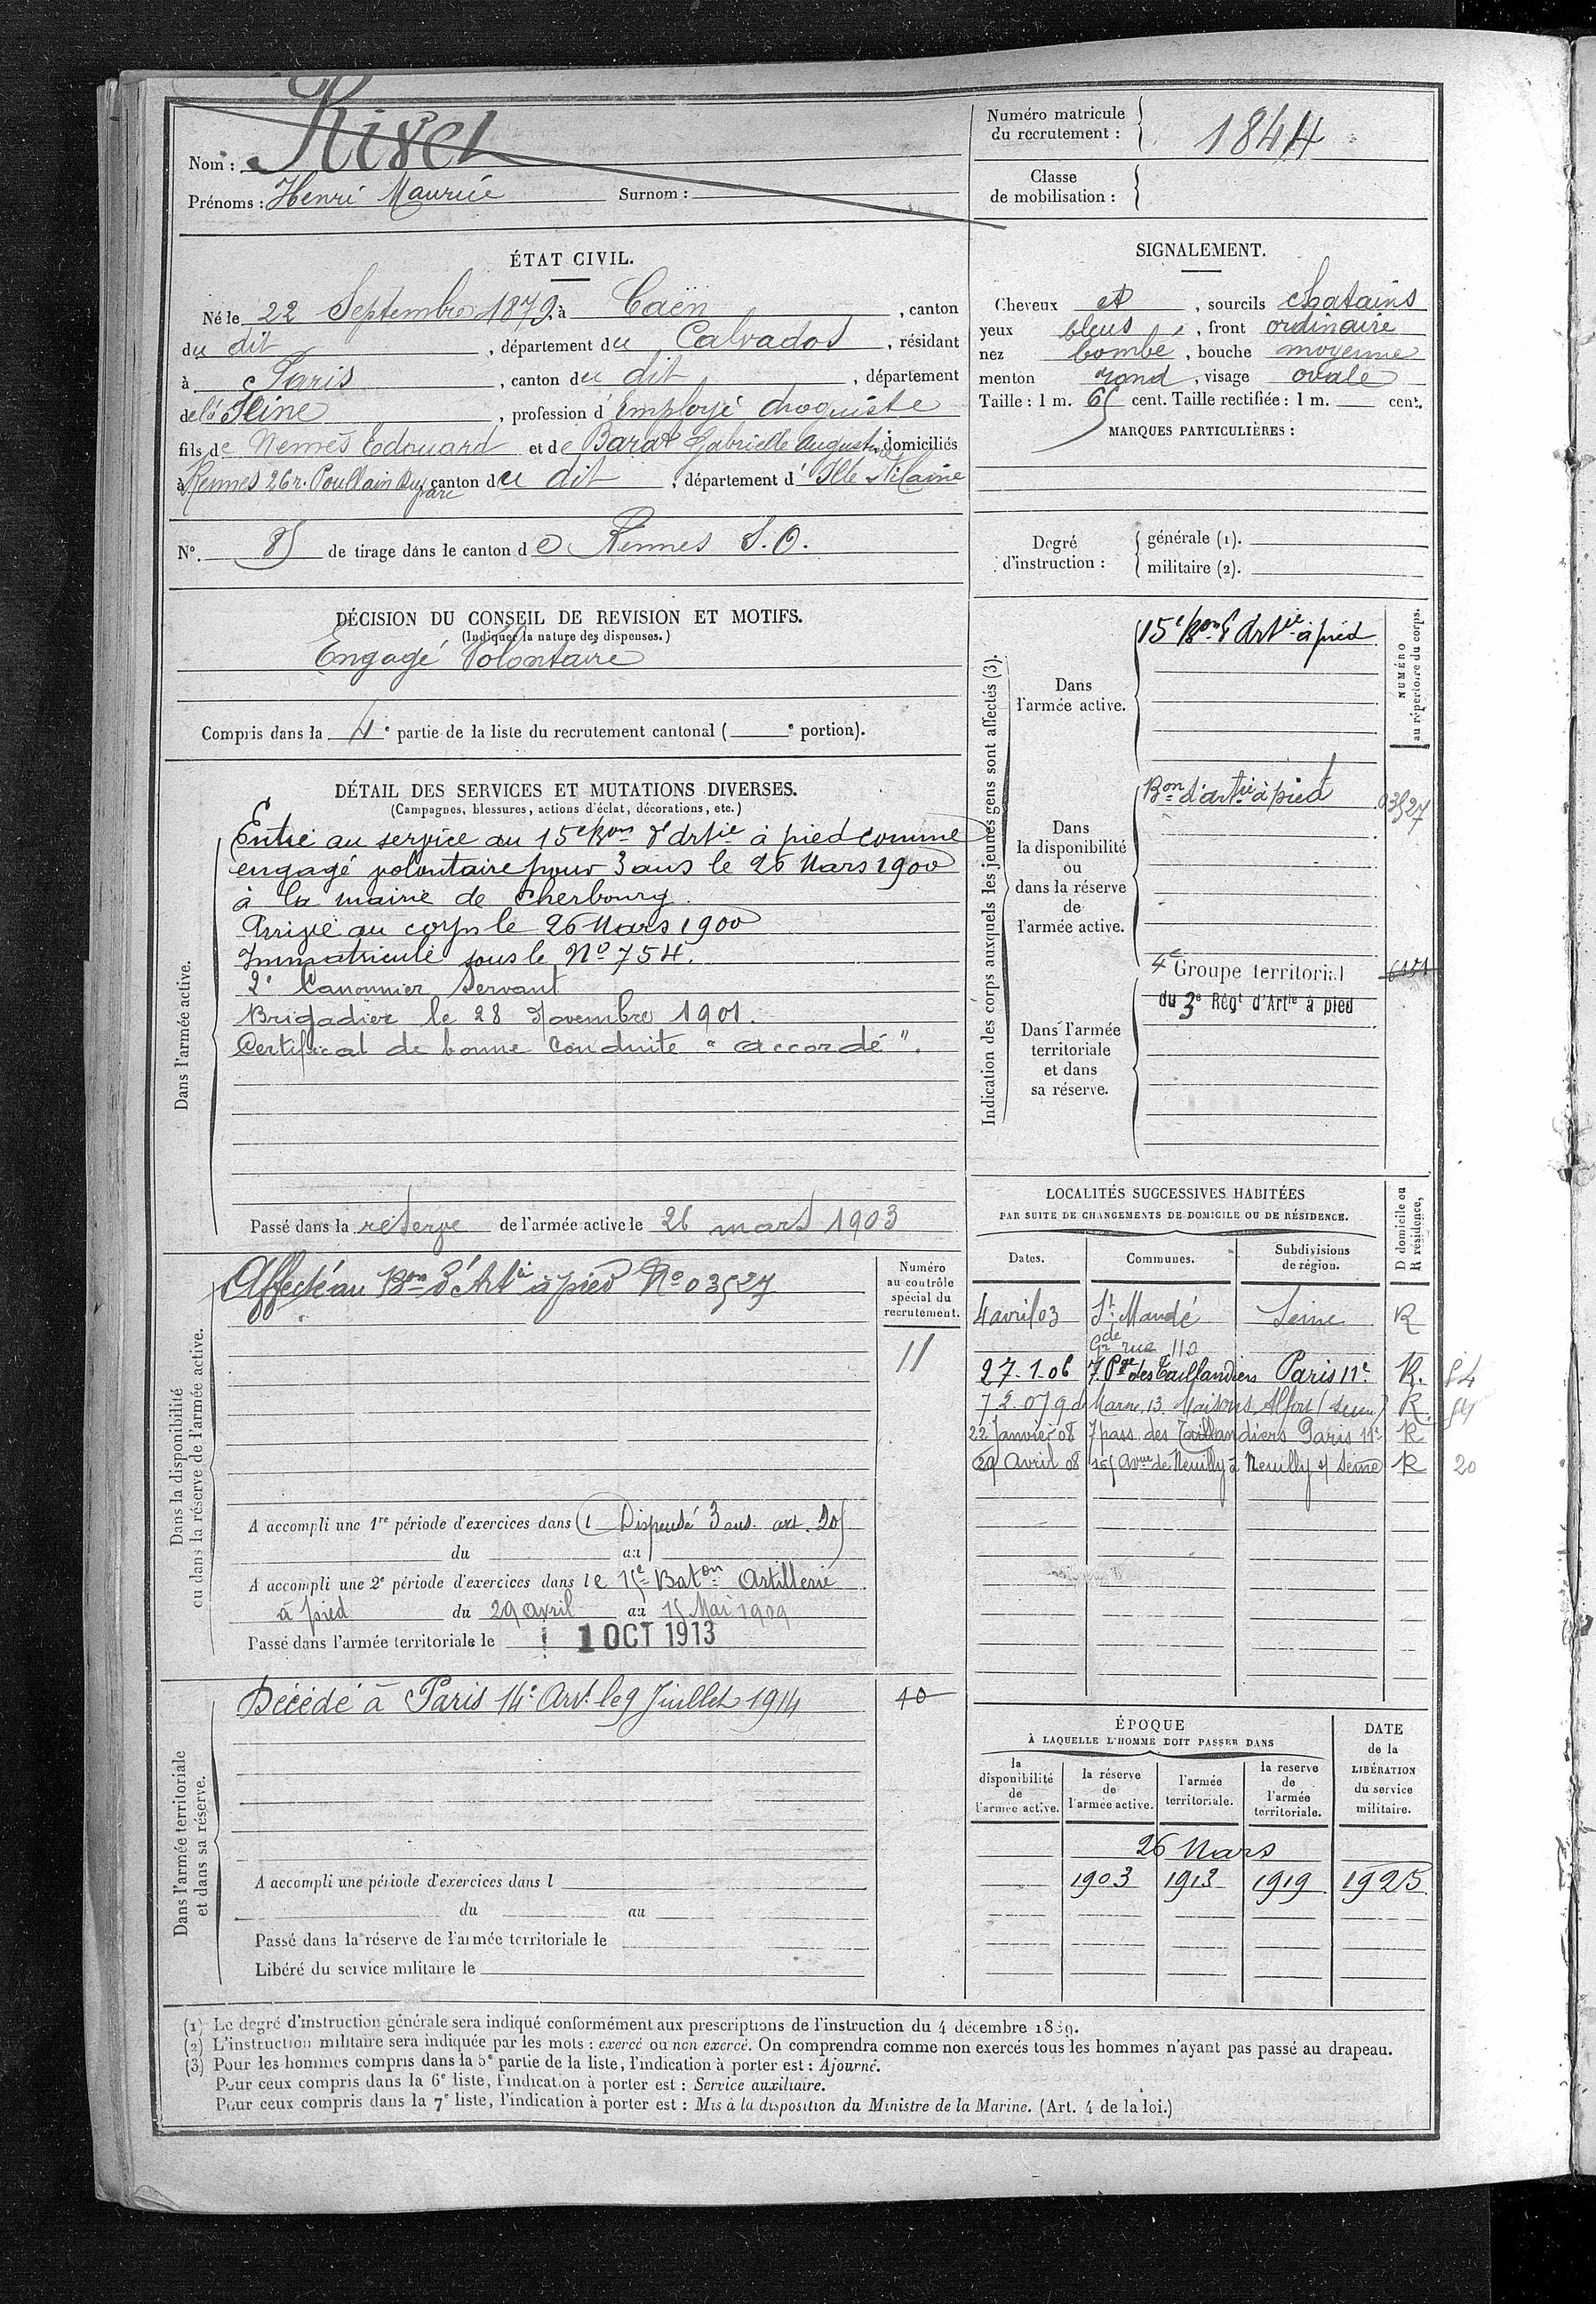 Nom :
Prénoms : Henri Maurice Surnom :
Numéro matricule du recrutement : 1844
Classe de mobilisation :
ÉTAT CIVIL.
Né le 22 Septembre 1879, à Caën , canton
du dit , département du Calvados , résidant
à Paris , canton du dit , département
de la Seine , profession d'Employé droguiste
fils de Nemès Edouard et de Barat Gabrielle domiciliés
à Rennes 26 r. Poullain Duparc canton du dit , département d'Ille et Vilaine
N°. 85 de tirage dans le canton de Rennes S.O.
DÉCISION DU CONSEIL DE REVISION ET MOTIFS.
(Indiquer la nature des dispenses.)
Engagé Volontaire
Compris dans la 4e partie de la liste du recrutement cantonal ( e portion).
DÉTAIL DES SERVICES ET MUTATIONS DIVERSES.
(Campagnes, blessures, actions d'éclat, décorations, etc.)
Dans l'armée active.
Entré au service au 15e Bon d'Artie à pied comme
engagé volontaire pour 3 ans le 26 Mars 1900
à la mairie de Cherbourg.
Arrivé au corps le 26 Mars 1900
Immatriculé sous le No 754.
2e Canonnier Servant
Brigadier le 28 Novembre 1901.
Certificat de bonne Conduite "accordé".
Passé dans la réserve de l'armée active le 26 mars 1903
Dans la disponibilité ou dans la réserve de l'armée active.
Numéro au contrôle spécial du recrutement.
Affecté au Bon d'Artie à pied No 03527
11
A accompli une 1re période d'exercices dans l Dispensé 3 ans art. 20
du au
A accompli une 2e période d'exercices dans le 15e Baton Artillerie
à pied du 29 avril au 15 Mai 1909
Passé dans l'armée territoriale le 1 OCT 1913
Dans l'armée territoriale et dans sa réserve.
Décédé à Paris 14e Arrt le 9 Juillet 1914
40
A accompli une période d'exercices dans l
du au
Passé dans la réserve de l'armée territoriale le
Libéré du service militaire le
SIGNALEMENT.
Cheveux et , sourcils chatains
yeux bleus , front ordinaire
nez bombé , bouche moyenne
menton rond , visage ovale
Taille : 1 m. 65 cent. Taille rectifiée : 1 m. cent.
MARQUES PARTICULIÈRES :
Degré d'instruction :
générale (1).
militaire (2).
Indication des corps auxquels les jeunes gens sont affectés (3).
NUMÉRO au répertoire du corps.
Dans l'armée active.
15e Bon d'Artie à pied
Dans la disponibilité ou dans la réserve de l'armée active.
Bon d'artie à pied 03527
Dans l'armée territoriale et dans sa réserve.
4e Groupe territorial
du 3e Régt d'Artie à pied
LOCALITÉS SUCCESSIVES HABITÉES
PAR SUITE DE CHANGEMENTS DE DOMICILE OU DE RÉSIDENCE.
D domicile ou R résidence,
Dates. Communes. Subdivisions de région.
4 avril 03 St Mandé Seine R
Gde rue 110
27-1-06 7 Pge des Taillandiers Paris 11e R. 84
7 2.07 9 d Marne 13. Maisons Alfort (Seine) R
22 Janvier 08 7 pass. des Taillandiers Paris 11e R
29 Avril 08 165 Avue de Neuilly à Neuilly s/ Seine R 20
ÉPOQUE
À LAQUELLE L'HOMME DOIT PASSER DANS
DATE de la LIBÉRATION du service militaire.
la disponibilité de l'armée active.
la réserve de l'armée active.
l'armée territoriale.
la reserve de l'armée territoriale.
26 Mars
1903 1913 1919 1925
(1) Le degré d'instruction générale sera indiqué conformément aux prescriptions de l'instruction du 4 décembre 1889.
(2) L'instruction militaire sera indiquée par les mots : exercé ou non exercé. On comprendra comme non exercés tous les hommes n'ayant pas passé au drapeau.
(3) Pour les hommes compris dans la 5e partie de la liste, l'indication à porter est : Ajourné.
Pour ceux compris dans la 6e liste, l'indication à porter est : Service auxiliaire.
Pour ceux compris dans la 7e liste, l'indication à porter est : Mis à la disposition du Ministre de la Marine. (Art. 4 de la loi.)